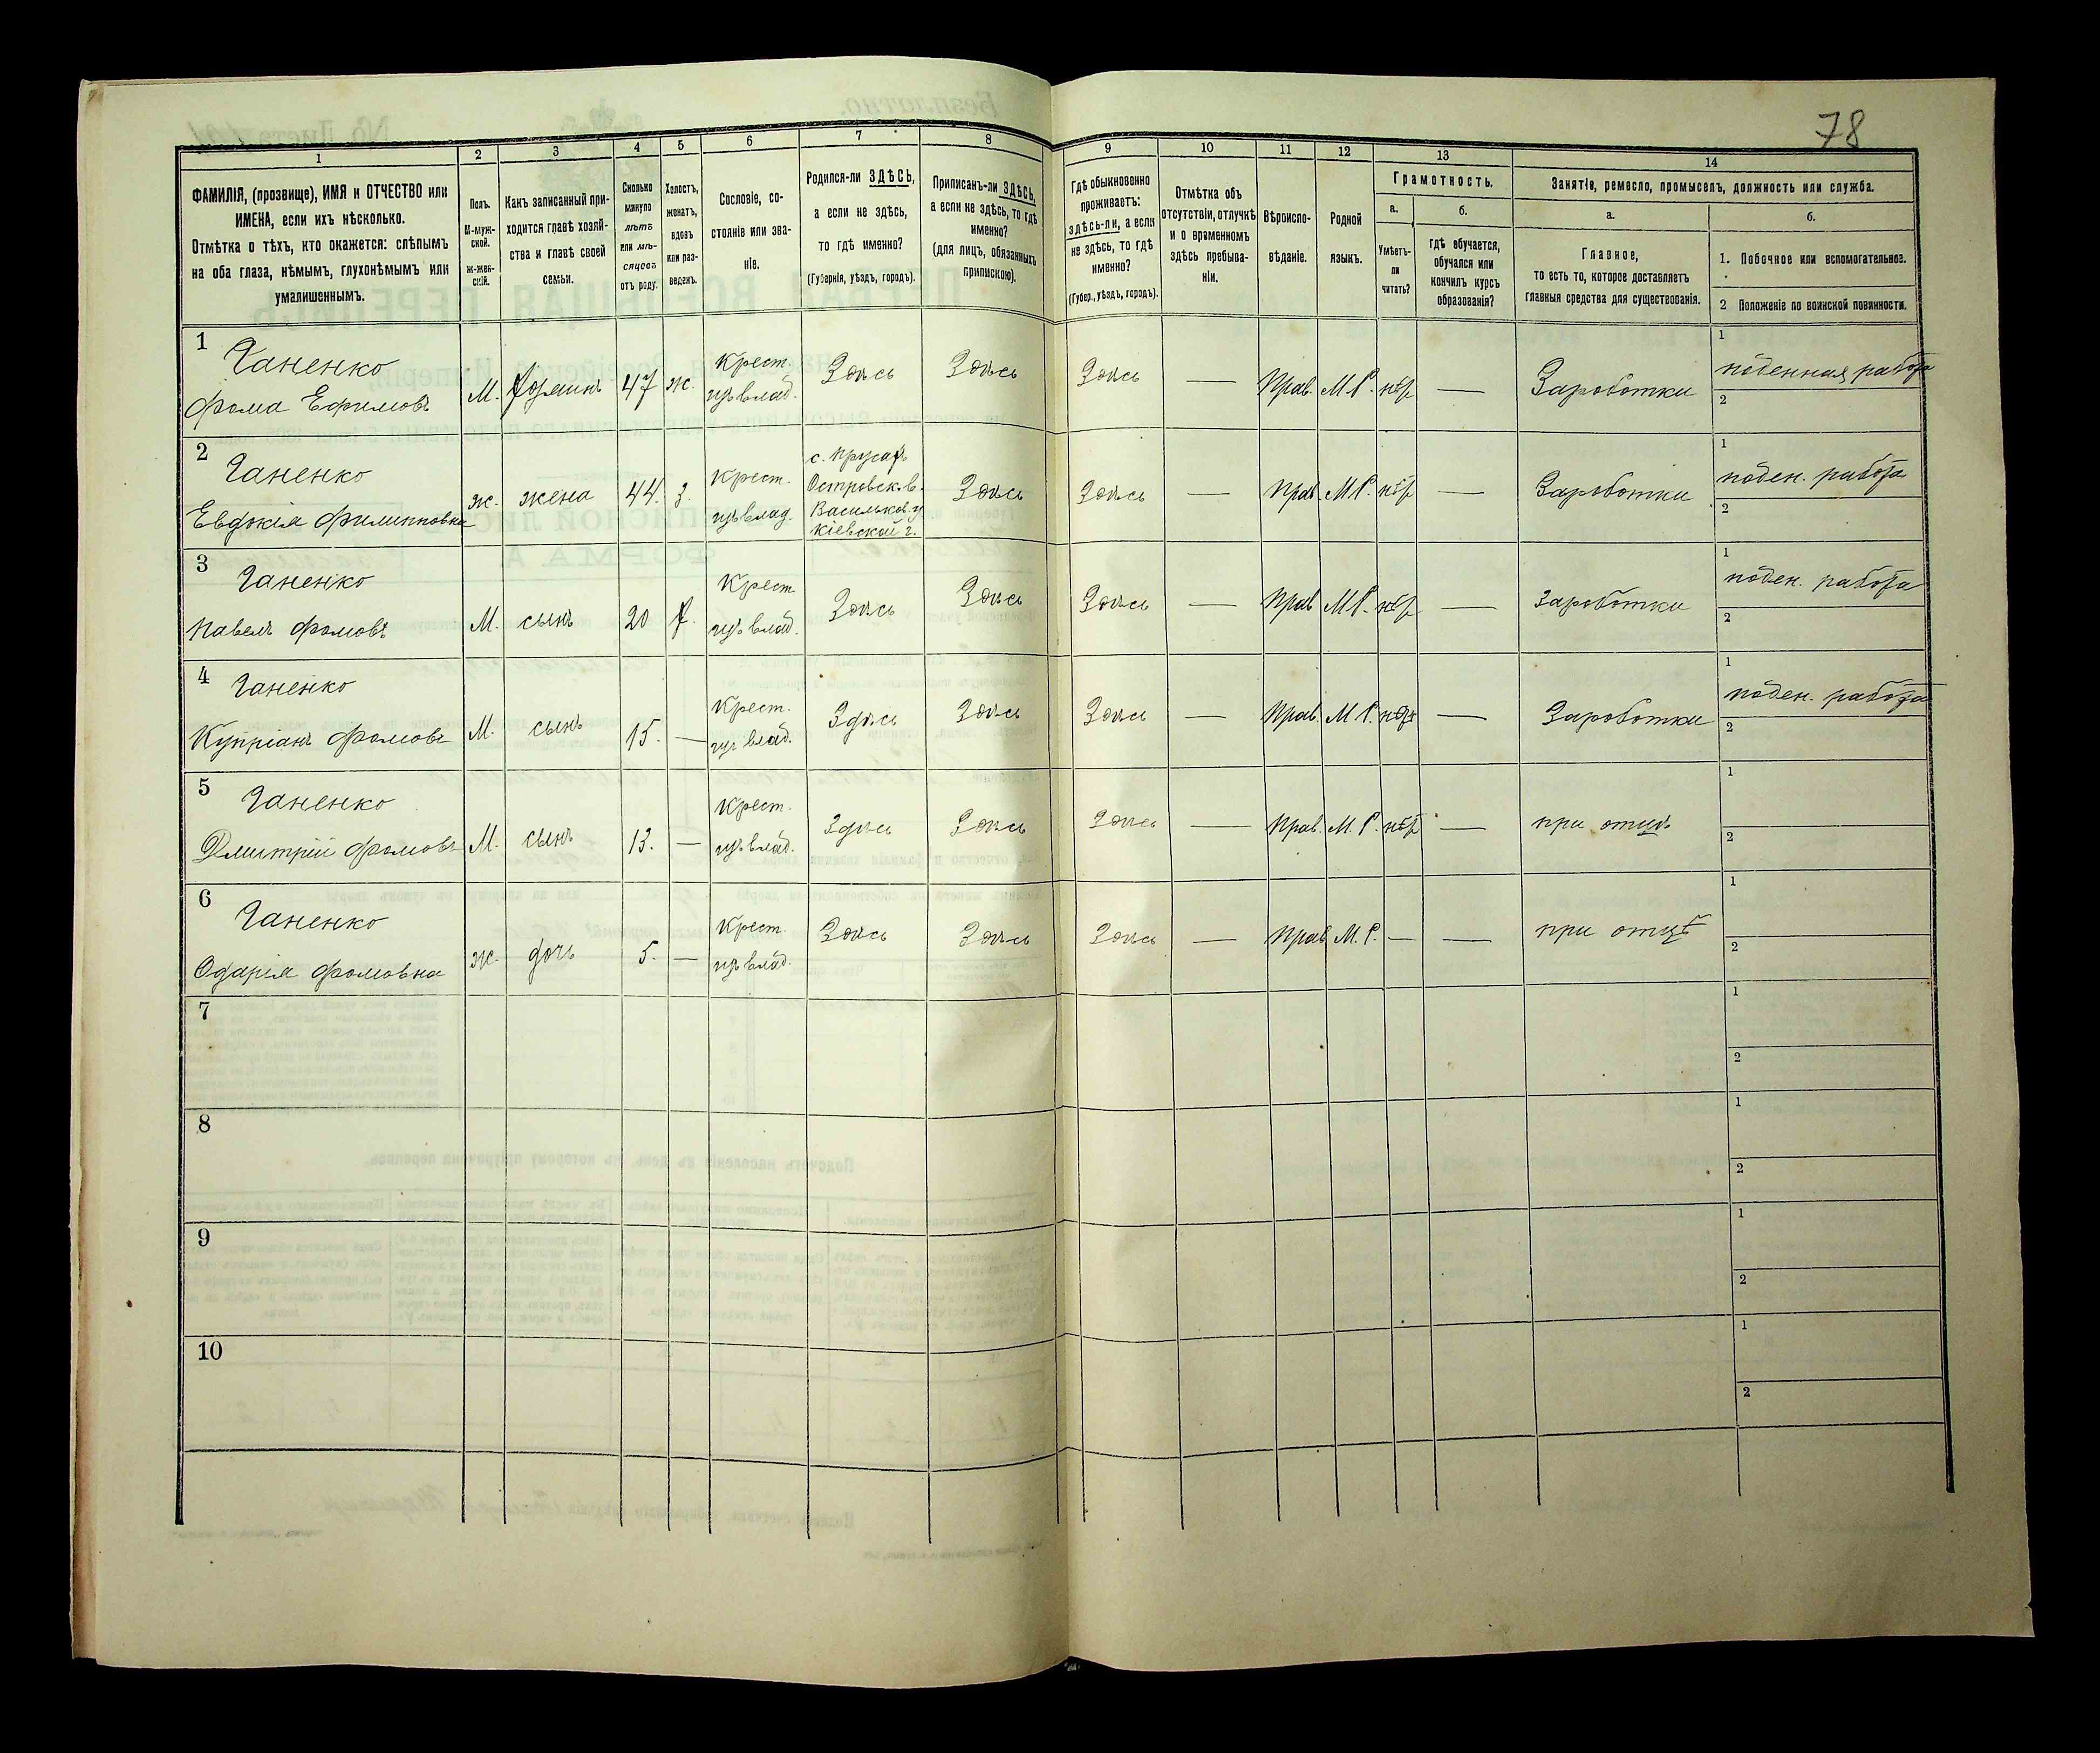 78
1 2 3 4 5 6 7 8 9 10 11 12 13 14
ФАМИЛІЯ, (прозвище), ИМЯ и ОТЧЕСТВО или
ИМЕНА, если ихъ нѣсколько.
Отмѣтка о тѣхъ, кто окажется: слѣпымъ
на оба глаза, нѣмымъ, глухонѣмымъ или
умалишеннымъ.
Полъ.
М-муж-
ской.
Ж-жен-
скій.
Какъ записанный при-
ходится главѣ хозяй-
ства и главѣ своей
семьи.
Сколько
минуло
лѣтъ
или мѣ-
сяцевъ
отъ роду.
Холостъ,
женатъ,
вдовъ
или раз-
веденъ.
Сословіе, со-
стояніе или зва-
ніе.
Родился-ли ЗДѢСЬ,
а если не здѣсь,
то гдѣ именно?
(Губернія, уѣздъ, городъ).
Приписанъ-ли ЗДѢСЬ,
а если не здѣсь, то гдѣ
именно?
(для лицъ, обязанныхъ
припискою).
Гдѣ обыкновенно
проживаетъ:
здѣсь-ли, а если
не здѣсь, то гдѣ
именно?
(Губер., уѣздъ, городъ).
Отмѣтка объ
отсутствіи, отлучкѣ
и о временномъ
здѣсь пребыва-
ніи.
Вѣроиспо-
вѣданіе.
Родной
языкъ.
Грамотность.
а.
Умѣетъ-
ли
читать?
б.
гдѣ обучается,
обучался или
кончилъ курсъ
образованія?
Занятіе, ремесло, промыселъ, должность или служба.
а.
Главное,
то есть то, которое доставляетъ
главныя средства для существованія.
б.
1. Побочное или вспомогательное.
2 Положеніе по воинской повинности.
1
Ганенко
Фома Ефимовъ
М. Хозяинъ 47 ж.
Крест.
изъ влад.
Здѣсь Здѣсь Здѣсь — Прав. М.Р. нѣт — Зароботки
1 поденная работа
2
2
Ганенко
Евдокія Филипповна
ж. жена 44. з.
Крест.
изъ влад.
с. Прусахъ
Островск. в.
Васильков. у
Кіевской г.
Здѣсь Здѣсь — Прав. М.Р. нѣт — Зароботки
1 поден. работа
2
3
Ганенко
Павелъ Фомовъ
М. сынъ 20 х.
Крест
изъ влад.
Здѣсь Здѣсь Здѣсь — Прав М.Р. нѣт — Зароботки
1 поден. работа
2
4
Ганенко
Купріанъ Фомовъ
М. сынъ 15. —
Крест.
изъ влад.
Здѣсь Здѣсь Здѣсь — Прав. М.Р. нѣт — Зароботки
1 поден. работа
2
5
Ганенко
Дмитрій Фомовъ
М. сынъ 13. —
Крест.
изъ влад.
Здѣсь Здѣсь Здѣсь — Прав. М.Р. нѣт — при отцѣ
1
2
6
Ганенко
Одарія Фомовна
ж. дочь 5. —
Крест.
изъ влад.
Здѣсь Здѣсь Здѣсь — Прав М.Р. — — при отцѣ
1
2
7
1
2
8
1
2
9
1
2
10
1
2